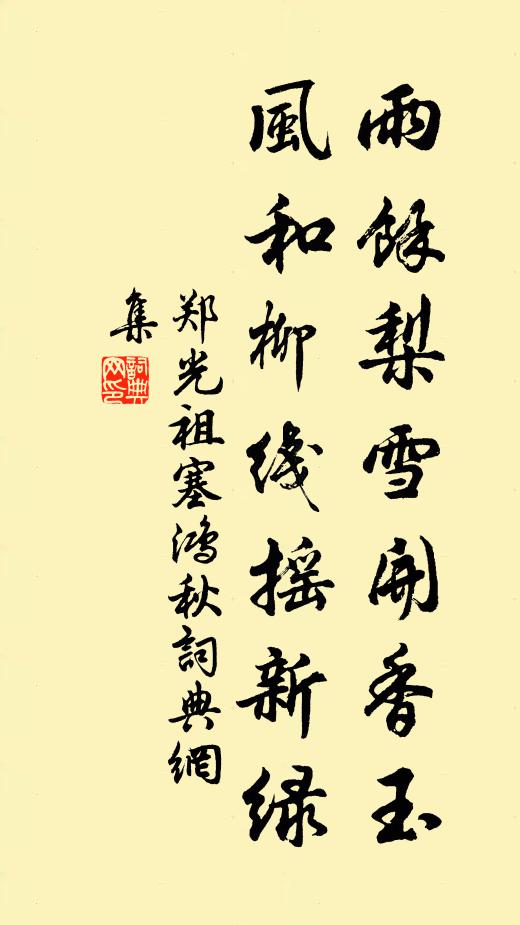 雨餘梨雪開香玉
風和柳线摇新绿
郑光祖塞鸿秋詞典網
集
詞典网印